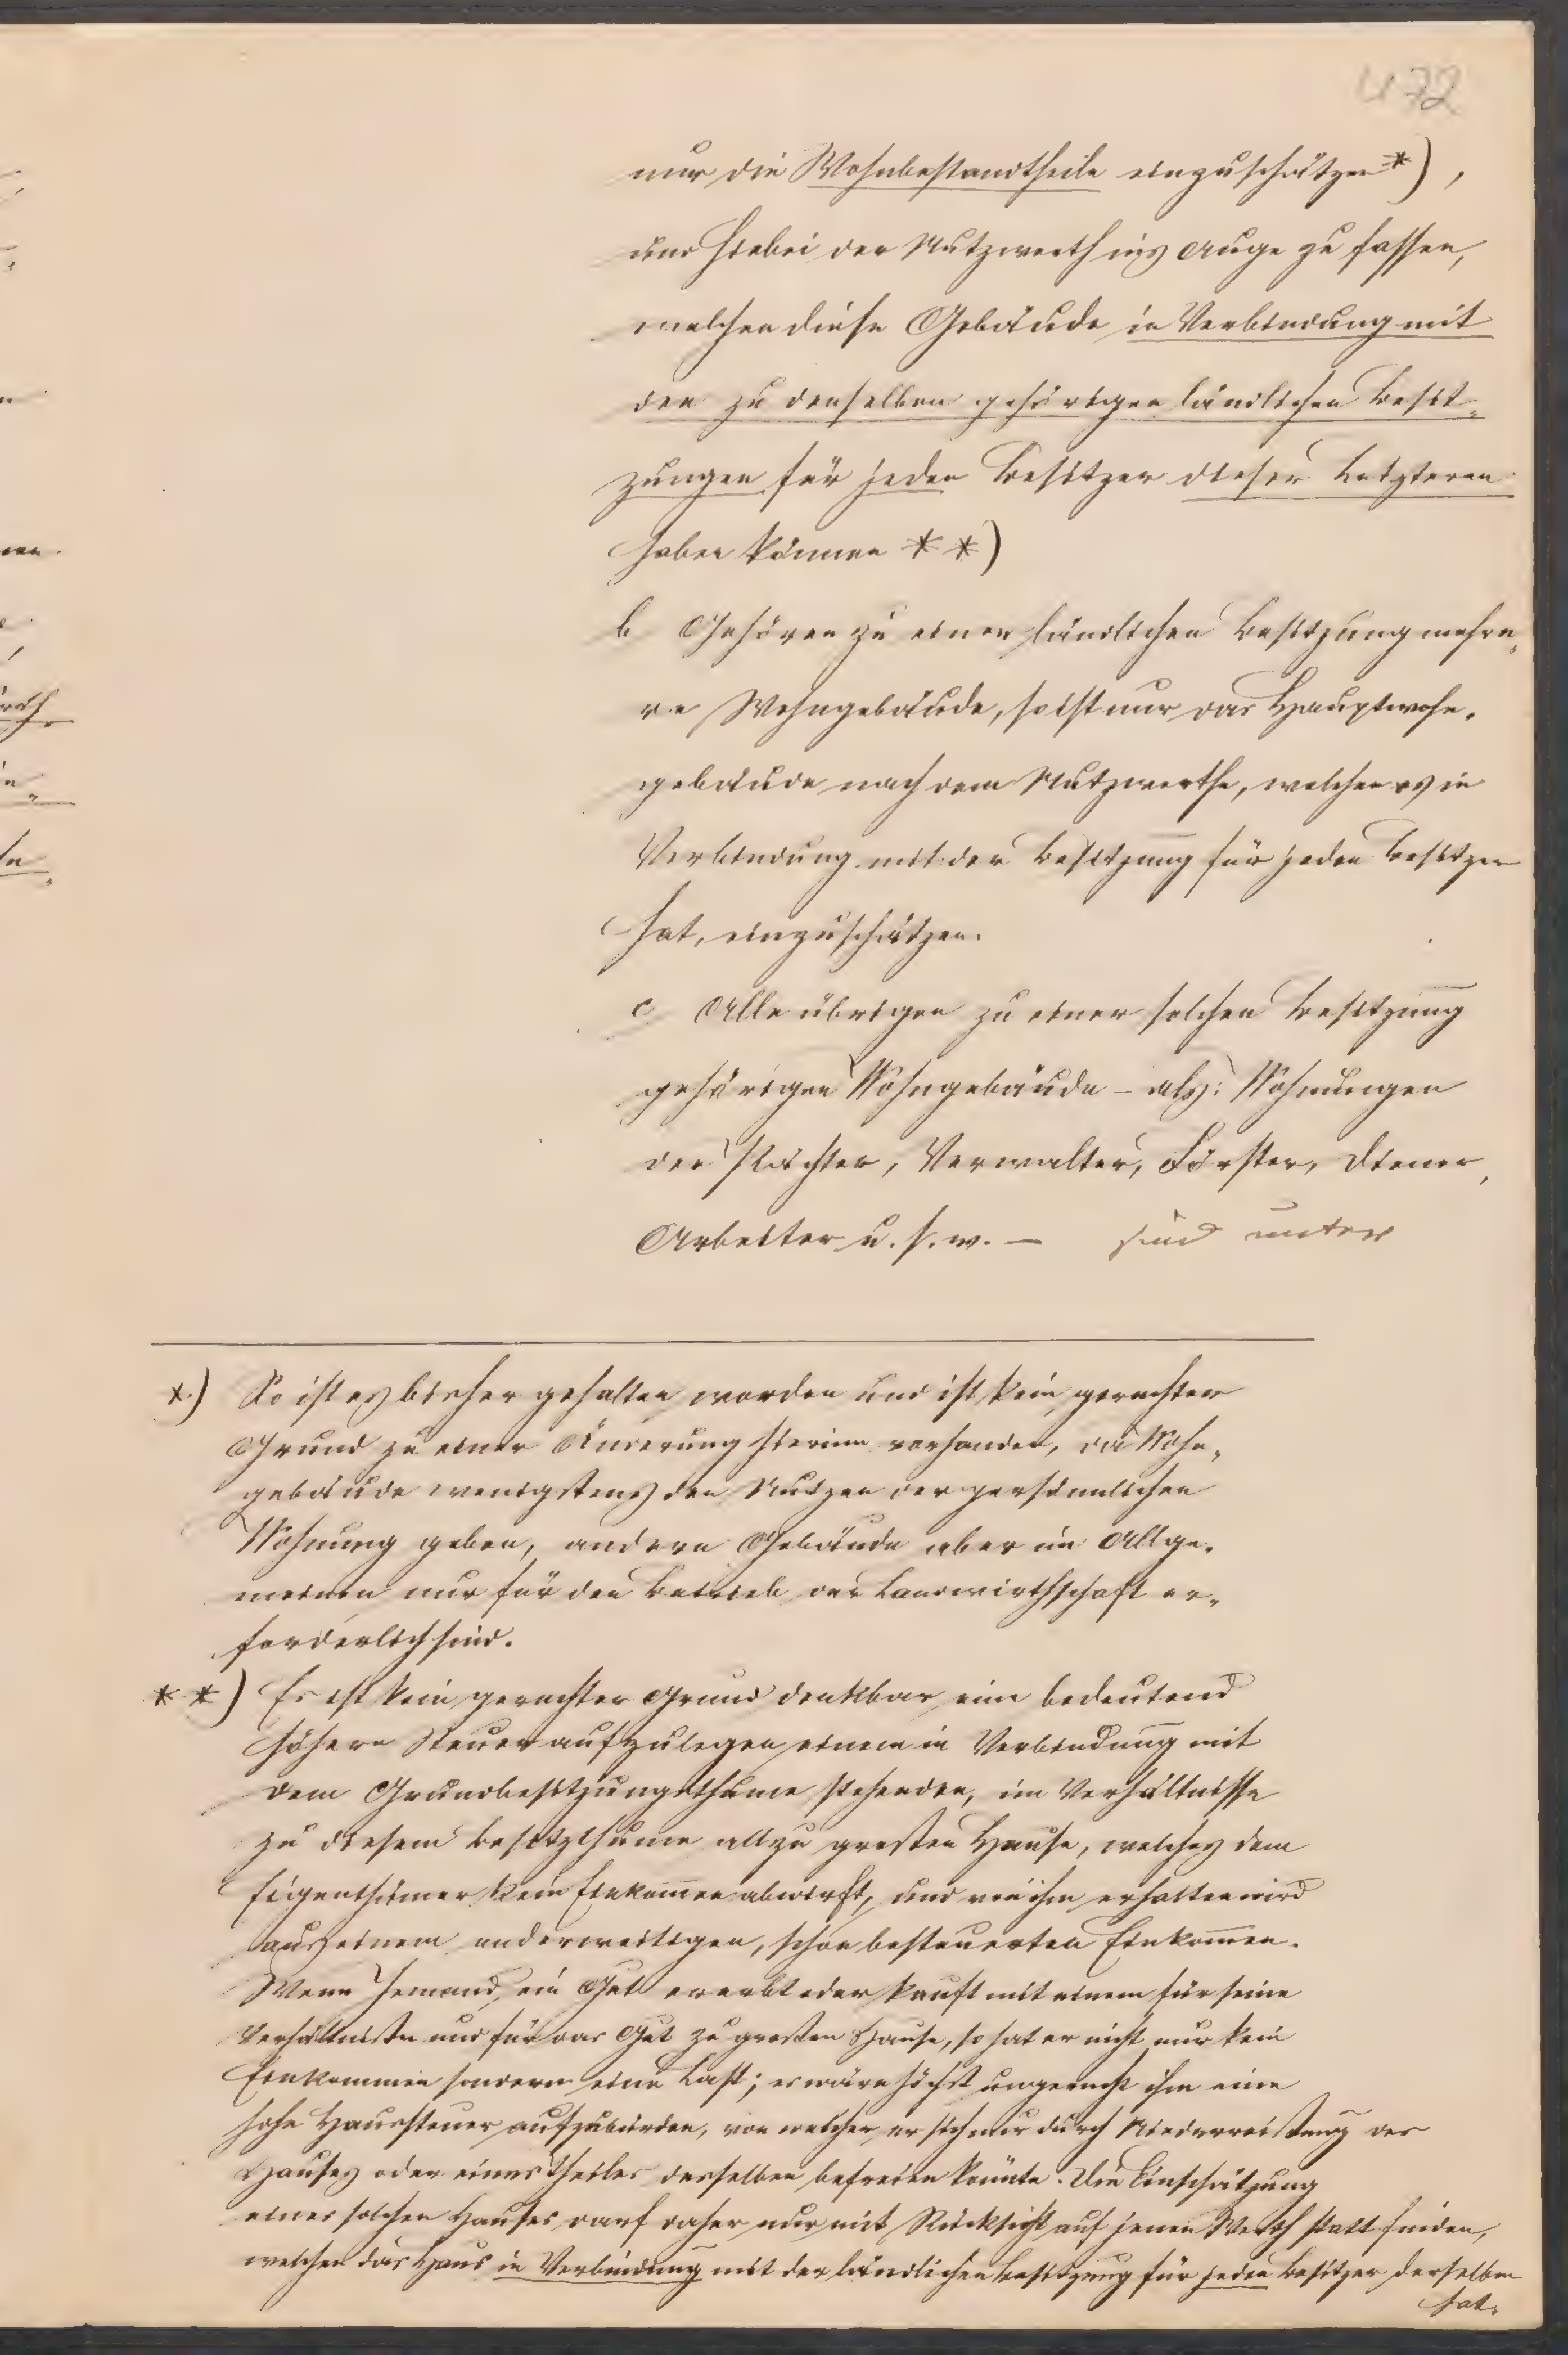 472
nur die Wohnbestandtheile einzuschätzen *),
und hiebei der Nutzwerth ins Auge zu fassen,
welchen diese Gebäude in Verbindung mit
den zu denselben gehörigen ländlichen Besit-
zungen für jeden Besitzer dieser Letzteren
haben können **)
b Gehören zu einer ländlichen Besitzung mehre-
re Wohngebäude, so ist nur das Hauptwohn-
gebäude nach dem Nutzwerthe, welchen es in
Verbindung mit der Besitzung für jeden Besitzer
hat, einzuschätzen.
c Alle übrigen zu einer solchen Besitzung
gehörigen Wohngebäude – als: Wohnungen
der Pächter, Verwalter, Förster, Diener,
Arbeiter u. s. w. – sind unter
*.) So ist es bisher gehalten worden und ist kein gerechter
Grund zu einer Änderung hierinn vorhanden, da Wohn-
gebäude wenigstens den Nutzen der persönnlichen
Wohnung geben, andere Gebäude aber im Allge-
meinen nur für den Betrieb der Landwirthschaft er-
forderlich sind.
**) Es ist kein gerechter Grund denkbar eine bedeutend
höhere Steuer aufzulegen einem in Verbindung mit
dem Grundbesitzungsthume stehenden, im Verhältnisse
zu diesem Besitzthume allzu großen Hause, welches dem
Eigenthümer kein Einkom̄en abwirft, und von ihm erhalten wird
aus einem anderweitigen, schon besteuerten Einkom̄en.
Wenn Jemand ein Gut ererbt oder kauft mit einem für seine
Verhältniße und für das Gut zu großen Hause, so hat er nicht nur kein
Einkommen sondern eine Last; es wäre höchst ungerecht ihm eine
hohe Haussteuer aufzubürden, von welcher er sich nur durch Niederreißung des
Hauses oder eines Theiles desselben befreien könnte. Die Einschätzung
eines solchen Hauses darf daher nur mit Rücksicht auf jenen Werth statt finden,
welchen das Haus in Verbindung mit der ländlichen Besitzung für jeden Besitzer derselben
hat.